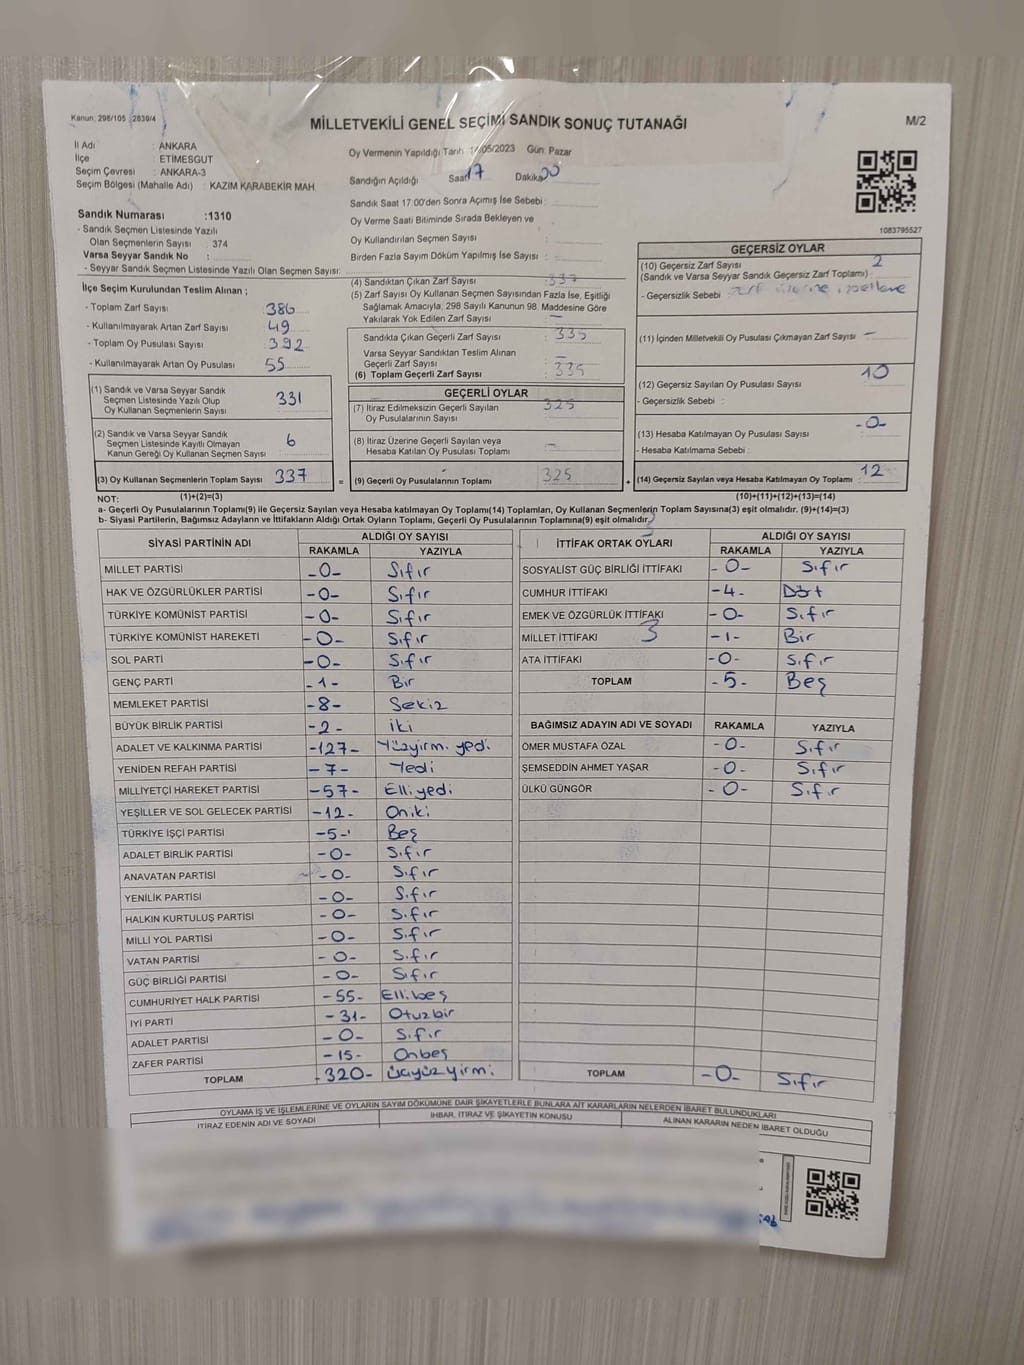 Kanun: 298/105 : 2839/4
MİLLETVEKİLİ GENEL SEÇİMİ SANDIK SONUÇ TUTANAĞI
M/2
İl Adı : ANKARA
İlçe : ETİMESGUT
Seçim Çevresi : ANKARA-3
Seçim Bölgesi (Mahalle Adı) : KAZIM KARABEKİR MAH.
Sandık Numarası :1310
- Sandık Seçmen Listesinde Yazılı
Olan Seçmenlerin Sayısı : 374
Varsa Seyyar Sandık No :
- Seyyar Sandık Seçmen Listesinde Yazılı Olan Seçmen Sayısı:
Oy Vermenin Yapıldığı Tarih 14/05/2023 Gün: Pazar
Sandığın Açıldığı Saat 17 Dakika 00
Sandık Saat 17.00'den Sonra Açımış İse Sebebi :
Oy Verme Saati Bitiminde Sırada Bekleyen ve
Oy Kullandırılan Seçmen Sayısı :
Birden Fazla Sayım Döküm Yapılmış İse Sayısı :
1083795527
İlçe Seçim Kurulundan Teslim Alınan ;
- Toplam Zarf Sayısı : 386
- Kullanılmayarak Artan Zarf Sayısı : 49
- Toplam Oy Pusulası Sayısı : 392
- Kullanılmayarak Artan Oy Pusulası : 55
(1) Sandık ve Varsa Seyyar Sandık
Seçmen Listesinde Yazılı Olup
Oy Kullanan Seçmenlerin Sayısı : 331
(2) Sandık ve Varsa Seyyar Sandık
Seçmen Listesinde Kayıtlı Olmayan
Kanun Gereği Oy Kullanan Seçmen Sayısı : 6
(3) Oy Kullanan Seçmenlerin Toplam Sayısı : 337
(1)+(2)=(3)
(4) Sandıktan Çıkan Zarf Sayısı : 337
(5) Zarf Sayısı Oy Kullanan Seçmen Sayısından Fazla İse, Eşitliği
Sağlamak Amacıyla; 298 Sayılı Kanunun 98. Maddesine Göre
Yakılarak Yok Edilen Zarf Sayısı : —
Sandıkta Çıkan Geçerli Zarf Sayısı : 335
Varsa Seyyar Sandıktan Teslim Alınan
Geçerli Zarf Sayısı : —
(6) Toplam Geçerli Zarf Sayısı : 335
GEÇERLİ OYLAR
(7) İtiraz Edilmeksizin Geçerli Sayılan
Oy Pusulalarının Sayısı : 325
(8) İtiraz Üzerine Geçerli Sayılan veya
Hesaba Katılan Oy Pusulası Toplamı : —
= (9) Geçerli Oy Pusulalarının Toplamı : 325 +
GEÇERSİZ OYLAR
(10) Geçersiz Zarf Sayısı 2
(Sandık ve Varsa Seyyar Sandık Geçersiz Zarf Toplamı) :
- Geçersizlik Sebebi : zarf üzerine
(11) İçinden Milletvekili Oy Pusulası Çıkmayan Zarf Sayısı : —
(12) Geçersiz Sayılan Oy Pusulası Sayısı : 10
- Geçersizlik Sebebi :
(13) Hesaba Katılmayan Oy Pusulası Sayısı : -0-
- Hesaba Katılmama Sebebi :
(14) Geçersiz Sayılan veya Hesaba Katılmayan Oy Toplamı : 12
(10)+(11)+(12)+(13)=(14)
NOT:
a- Geçerli Oy Pusulalarının Toplamı(9) ile Geçersiz Sayılan veya Hesaba katılmayan Oy Toplamı(14) Toplamları, Oy Kullanan Seçmenlerin Toplam Sayısına(3) eşit olmalıdır. (9)+(14)=(3)
b- Siyasi Partilerin, Bağımsız Adayların ve İttifakların Aldığı Ortak Oyların Toplamı, Geçerli Oy Pusulalarının Toplamına(9) eşit olmalıdır.
3
SİYASİ PARTİNİN ADI ALDIĞI OY SAYISI
RAKAMLA YAZIYLA
MİLLET PARTİSİ -0- Sıfır
HAK VE ÖZGÜRLÜKLER PARTİSİ -0- Sıfır
TÜRKİYE KOMÜNİST PARTİSİ -0- Sıfır
TÜRKİYE KOMÜNİST HAREKETİ -0- Sıfır
SOL PARTİ -0- Sıfır
GENÇ PARTİ -1- Bir
MEMLEKET PARTİSİ -8- Sekiz
BÜYÜK BİRLİK PARTİSİ -2- iki
ADALET VE KALKINMA PARTİSİ -127- Yüzyirmi yedi
YENİDEN REFAH PARTİSİ -7- Yedi
MİLLİYETÇİ HAREKET PARTİSİ -57- Elli yedi
YEŞİLLER VE SOL GELECEK PARTİSİ -12- Oniki
TÜRKİYE İŞÇİ PARTİSİ -5- Beş
ADALET BİRLİK PARTİSİ -0- Sıfır
ANAVATAN PARTİSİ -0- Sıfır
YENİLİK PARTİSİ -0- Sıfır
HALKIN KURTULUŞ PARTİSİ -0- Sıfır
MİLLİ YOL PARTİSİ -0- Sıfır
VATAN PARTİSİ -0- Sıfır
GÜÇ BİRLİĞİ PARTİSİ -0- Sıfır
CUMHURİYET HALK PARTİSİ -55- Elli beş
İYİ PARTİ -31- Otuzbir
ADALET PARTİSİ -0- Sıfır
ZAFER PARTİSİ -15- Onbeş
TOPLAM -320- üçyüzyirmi
İTTİFAK ORTAK OYLARI ALDIĞI OY SAYISI
RAKAMLA YAZIYLA
SOSYALİST GÜÇ BİRLİĞİ İTTİFAKI -0- Sıfır
CUMHUR İTTİFAKI -4- Dört
EMEK VE ÖZGÜRLÜK İTTİFAKI -0- Sıfır
MİLLET İTTİFAKI 3 -1- Bir
ATA İTTİFAKI -0- Sıfır
TOPLAM -5- Beş
BAĞIMSIZ ADAYIN ADI VE SOYADI RAKAMLA YAZIYLA
ÖMER MUSTAFA ÖZAL -0- Sıfır
ŞEMSEDDİN AHMET YAŞAR -0- Sıfır
ÜLKÜ GÜNGÖR -0- Sıfır
TOPLAM -0- Sıfır
OYLAMA İŞ VE İŞLEMLERİNE VE OYLARIN SAYIM DÖKÜMÜNE DAİR ŞİKAYETLERLE BUNLARA AİT KARARLARIN NELERDEN İBARET BULUNDUKLARI
İTİRAZ EDENİN ADI VE SOYADI İHBAR, İTİRAZ VE ŞİKAYETİN KONUSU ALINAN KARARIN NEDEN İBARET OLDUĞU